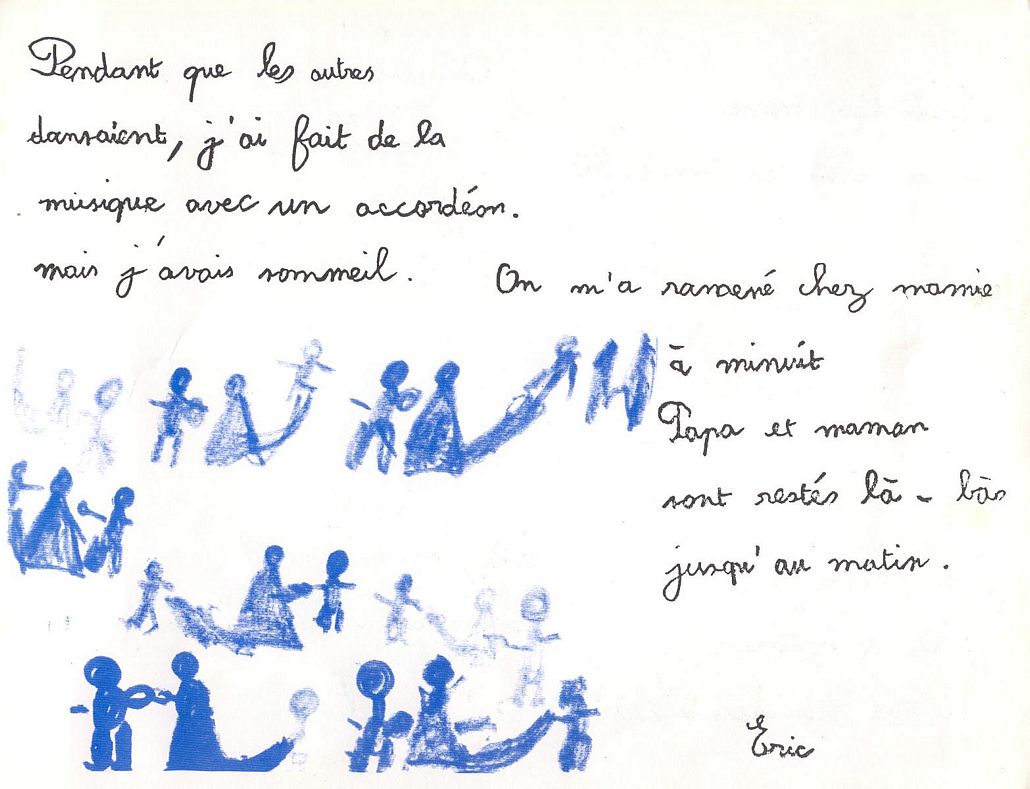 Pendant que les autres
dansaient, j'ai fait de la
musique avec un accordéon.
mais j'avais sommeil.
On m'a ramené chez mamie
à minuit
Papa et maman
sont restés là-bàs
jusqu'au matin.
Eric